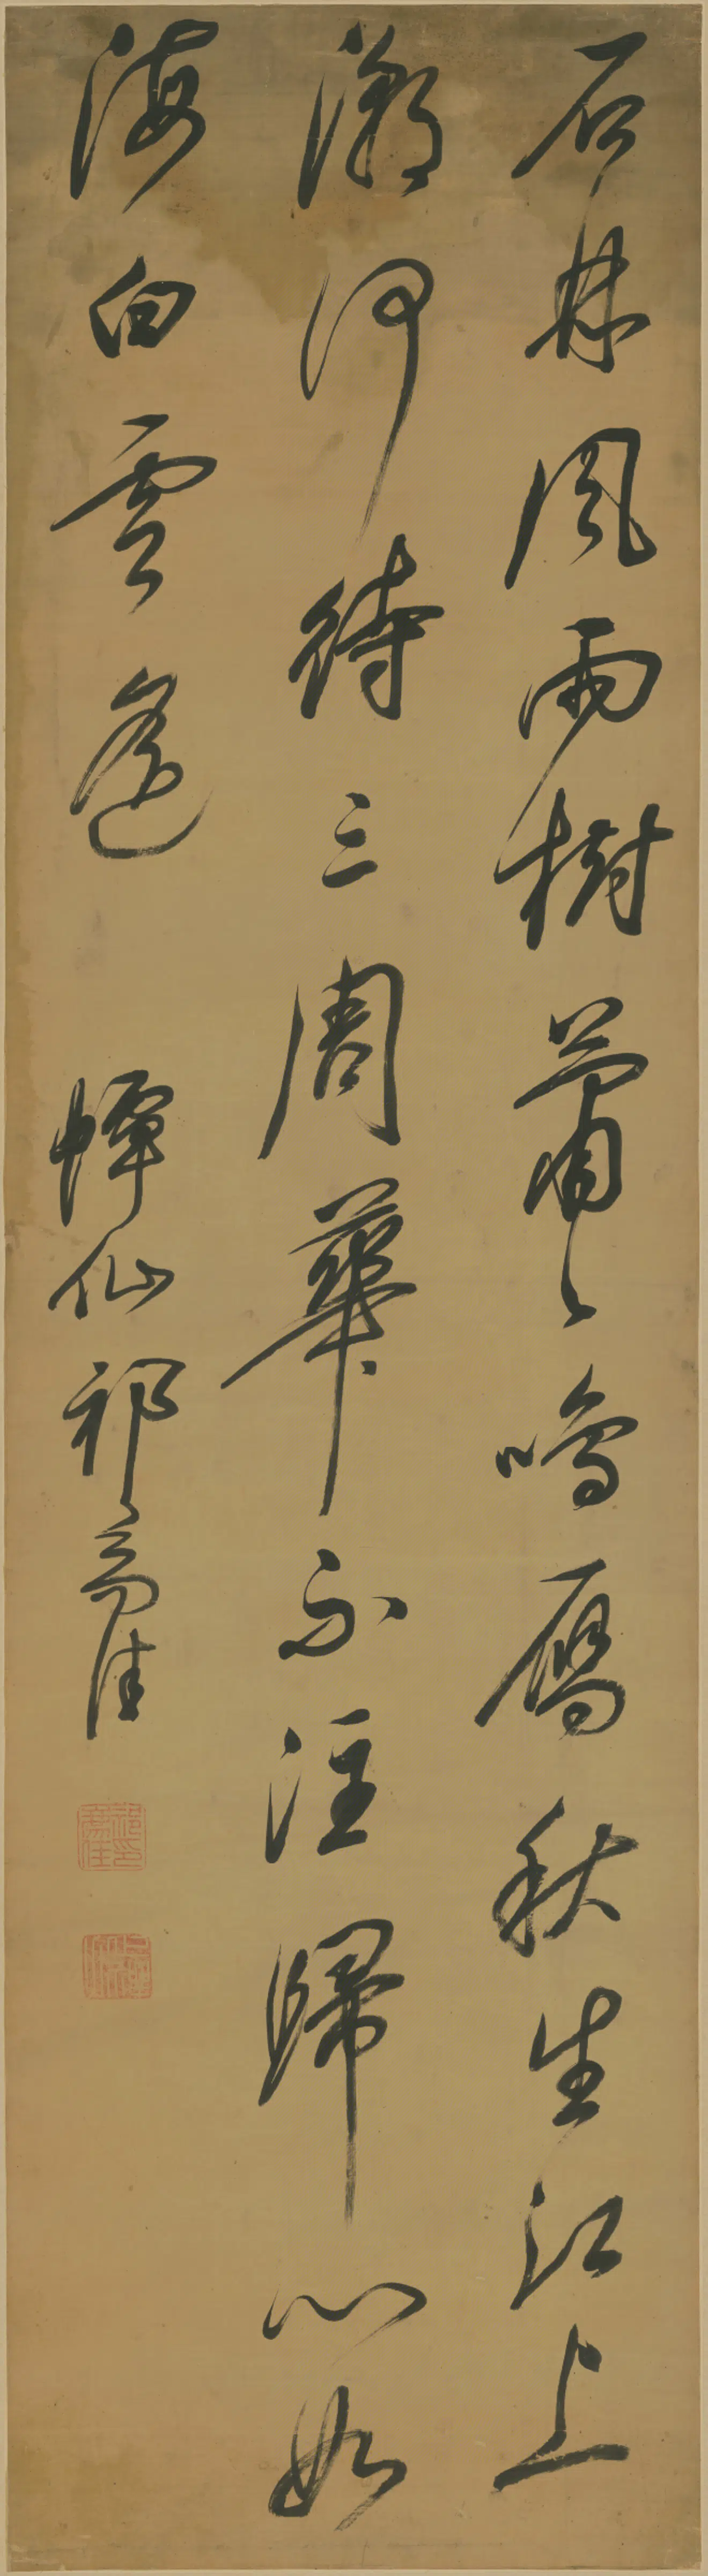 石林風雨樹蕭々鳴雁秋生江上
潮何待三周華不注歸心如
海白雲遙 仙祁豸佳
祁豸佳印